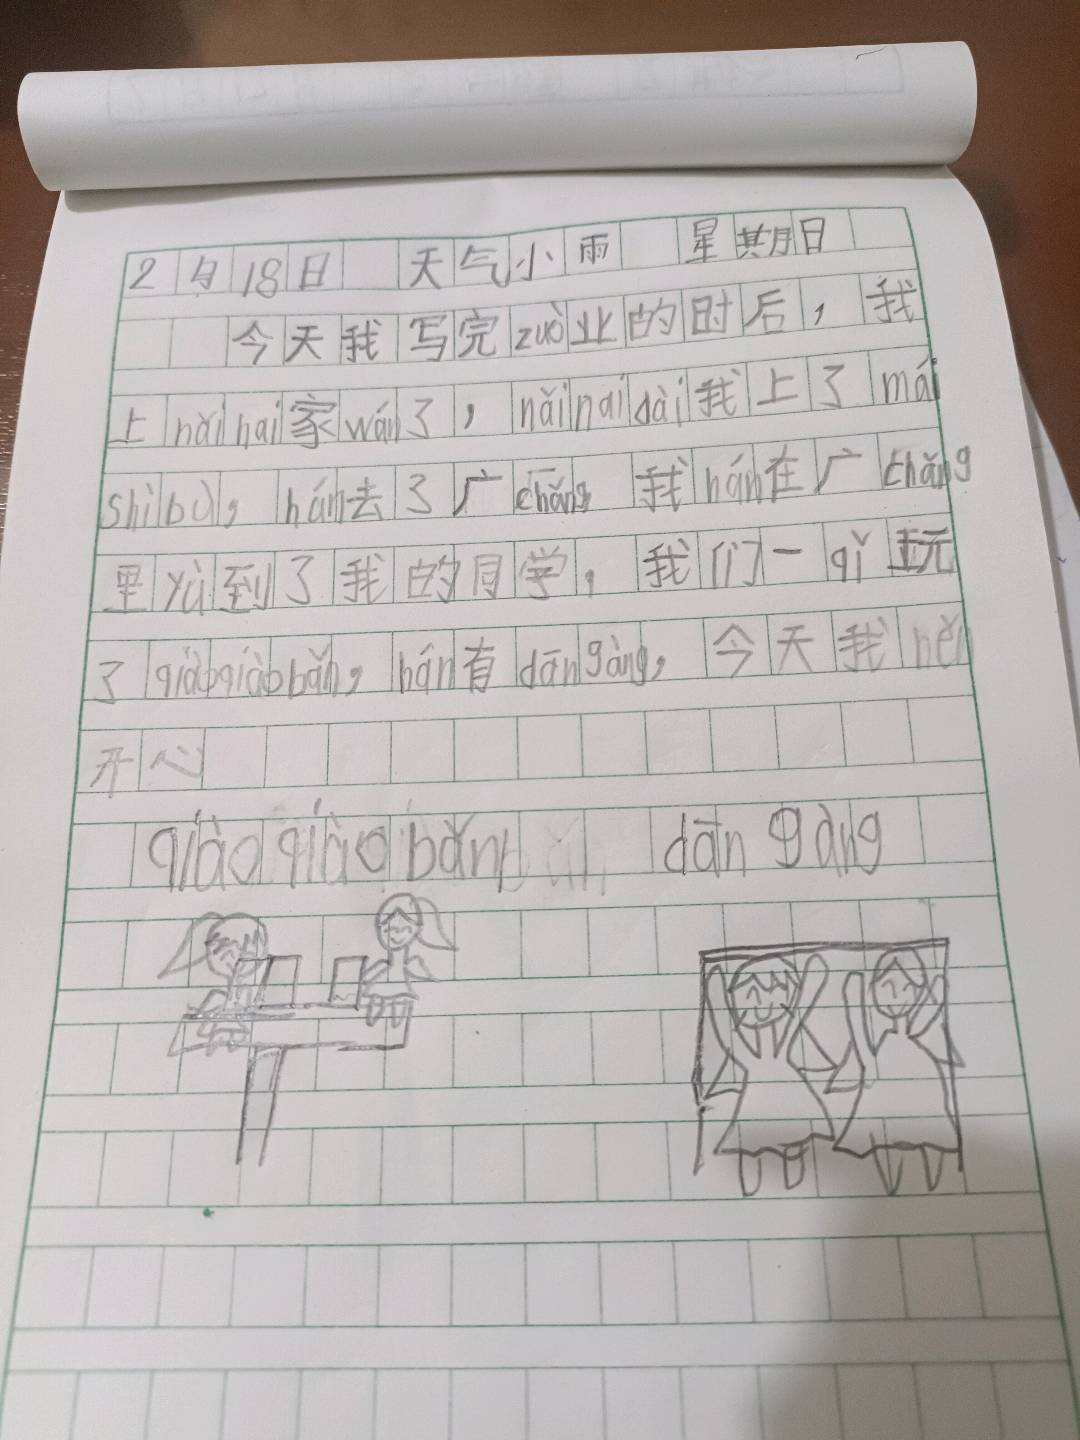 2月18日 天气小雨 星期日
今天我写完zuò业的时后，我
上nǎinai家wán了，nǎinaidài我上了mái
shìbù，hán去了广chǎng 我hán在广chǎng
里yù到了我的同学，我们一qǐ玩
了qiàoqiàobǎn，hán有dāngàng，今天我hěn
开心
qiàoqiàobǎn dāngàng